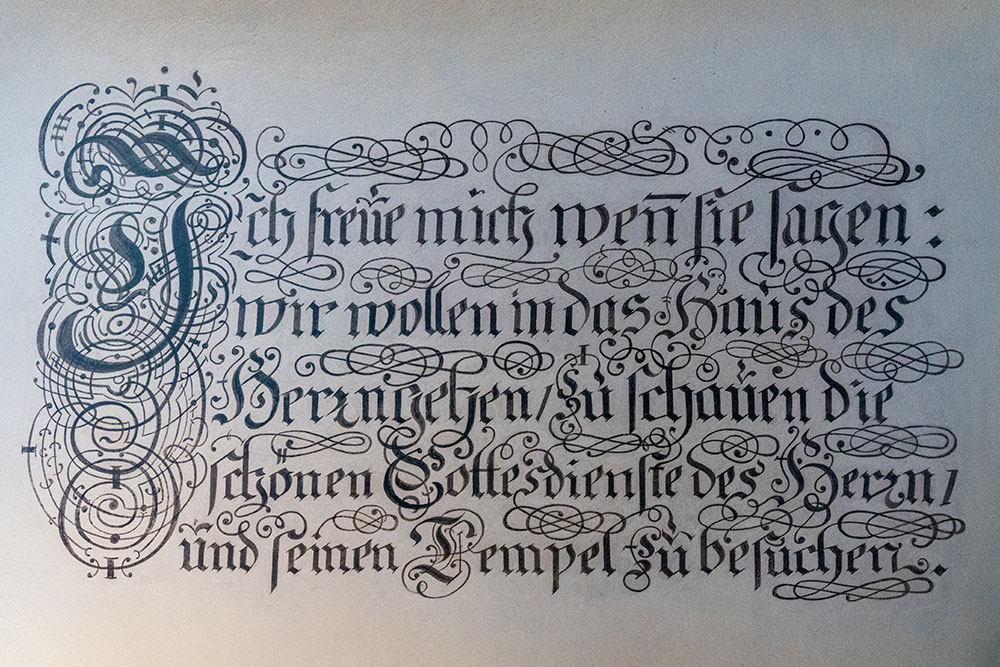 Ich freue mich wen̄ sie sagen:
wir wollen in das Haus des
Herrn gehen / zu schauen die
schönen Gottesdienste des Herrn /
und seinen Tempel zu besuchen.